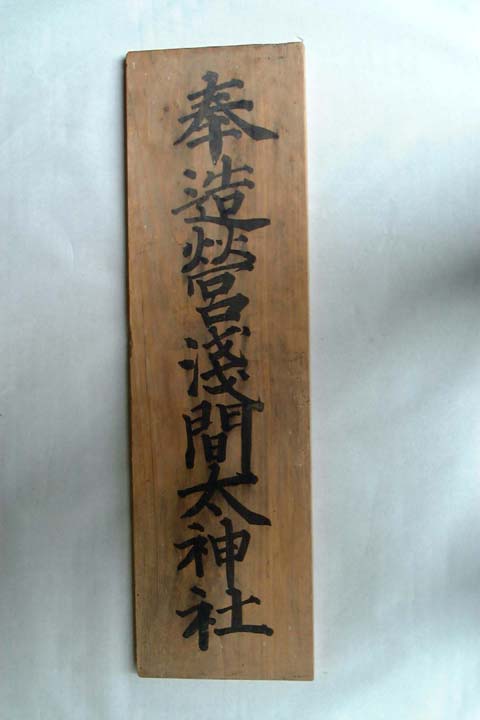 奉造營淺間太神社